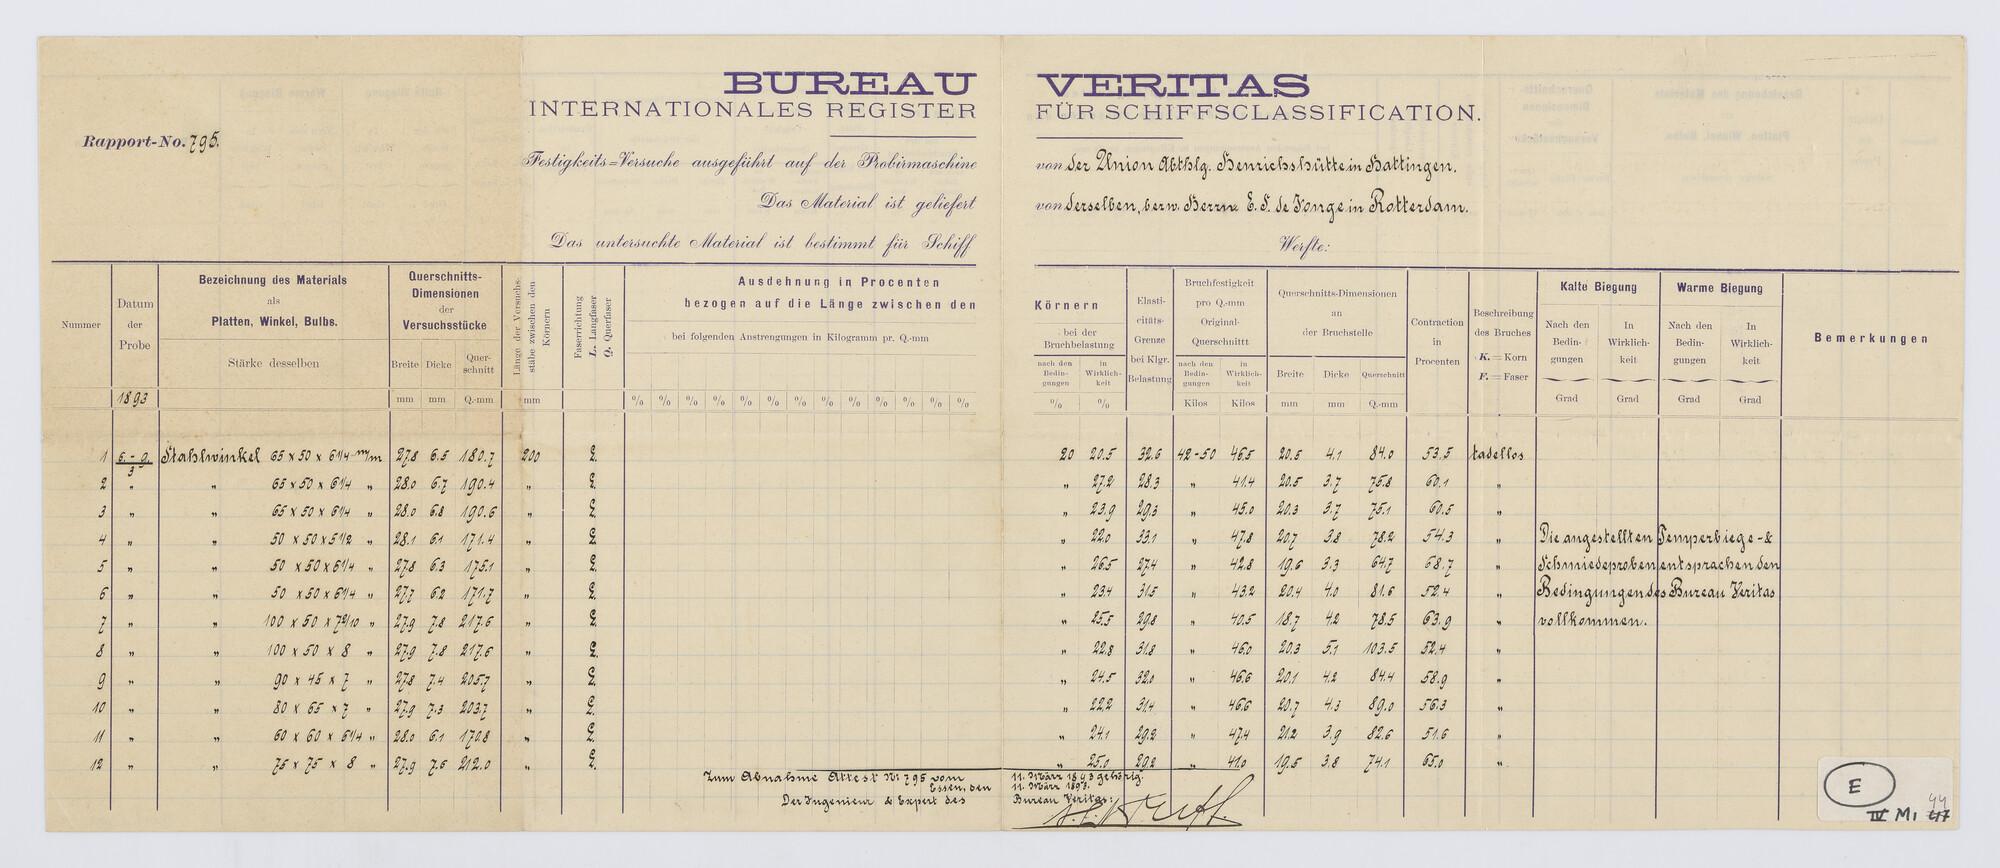 BUREAU VERITAS
INTERNATIONALES REGISTER FÜR SCHIFFSCLASSIFICATION.
Rapport-No. 795.
Festigkeits=Versuche ausgeführt auf der Probirmaschine von der Union Abthlg. Henrichshütte in Hattingen.
Das Material ist geliefert von derselben, bezw. Herrn E. S. de Jonge in Rotterdam.
Das untersuchte Material ist bestimmt für Schiff Werfte:
Nummer
Datum der Probe
1893
Bezeichnung des Materials
als
Platten, Winkel, Bulbs.
Stärke desselben
Querschnitts-Dimensionen
der
Versuchsstücke
Breite Dicke Quer-schnitt
mm mm Q.-mm
Länge der Versuchs-stäbe zwischen den Körnern
mm
Faserrichtung
L. Langfaser
Q. Querfaser
Ausdehnung in Procenten
bezogen auf die Länge zwischen den Körnern
bei folgenden Anstrengungen in Kilogramm pr. Q.-mm
% % % % % % % % % % % % %
bei der Bruchbelastung
nach den Bedin-gungen
in Wirklich-keit
% %
Elasti-citäts-Grenze bei Klgr. Belastung
Bruchfestigkeit pro Q.-mm Original-Querschnittt
nach den Bedin-gungen
in Wirklich-keit
Kilos Kilos
Querschnitts-Dimensionen
an
der Bruchstelle
Breite Dicke Querschnitt
mm mm Q.-mm
Contraction in Procenten
Beschreibung des Bruches
K. = Korn
F. = Faser
Kalte Biegung
Nach den Bedin-gungen
In Wirklich-keit
Grad Grad
Warme Biegung
Nach den Bedin-gungen
In Wirklich-keit
Grad Grad
Bemerkungen
1 6.-9./3 Stahlwinkel 65 x 50 x 6 1/4 m/m 27.8 6.5 180.7 200 L. 20 20.5 32.6 42-50 46.5 20.5 4.1 84.0 53.5 tadellos
2 " " 65 x 50 x 6 1/4 " 28.0 6.7 190.4 " L. " 27.2 28.3 " 41.4 20.5 3.7 75.8 60.1 "
3 " " 65 x 50 x 6 1/4 " 28.0 6.8 190.6 " L. " 23.9 29.3 " 45.0 20.3 3.7 75.1 60.5 "
4 " " 50 x 50 x 5 1/2 " 28.1 6.1 171.4 " L. " 22.0 33.1 " 47.8 20.7 3.8 78.2 54.3 " Die angestellten Temperbiege- &
5 " " 50 x 50 x 6 1/4 " 27.8 6.3 175.1 " L. " 26.5 27.4 " 42.8 19.6 3.3 64.7 68.7 " Schmiedeproben entsprachen den
6 " " 50 x 50 x 6 1/4 " 27.7 6.2 171.7 " L. " 23.4 31.5 " 43.2 20.4 4.0 81.6 52.4 " Bedingungen des Bureau Veritas
7 " " 100 x 50 x 7 9/10 " 27.9 7.8 217.6 " L. " 25.5 29.8 " 40.5 18.7 4.2 78.5 63.9 " vollkommen.
8 " " 100 x 50 x 8 " 27.9 7.8 217.6 " L. " 22.8 31.8 " 46.0 20.3 5.1 103.5 52.4 "
9 " " 90 x 45 x 7 " 27.8 7.4 205.7 " L. " 24.5 32.0 " 46.6 20.1 4.2 84.4 58.9 "
10 " " 80 x 65 x 7 " 27.9 7.3 203.7 " L. " 22.2 31.4 " 46.6 20.7 4.3 89.0 56.3 "
11 " " 60 x 60 x 6 1/4 " 28.0 6.1 170.8 " L. " 24.1 29.2 " 47.4 21.2 3.9 82.6 51.6 "
12 " " 75 x 75 x 8 " 27.9 7.6 212.0 " L. " 25.0 29.2 " 41.0 19.5 3.8 74.1 65.0 "
Zum Abnahme Attest No 795 vom 11. März 1893 gehörig.
Essen, den 11. März 1893.
Der Ingenieur & Expert des Bureau Veritas:
E
IV M1 44